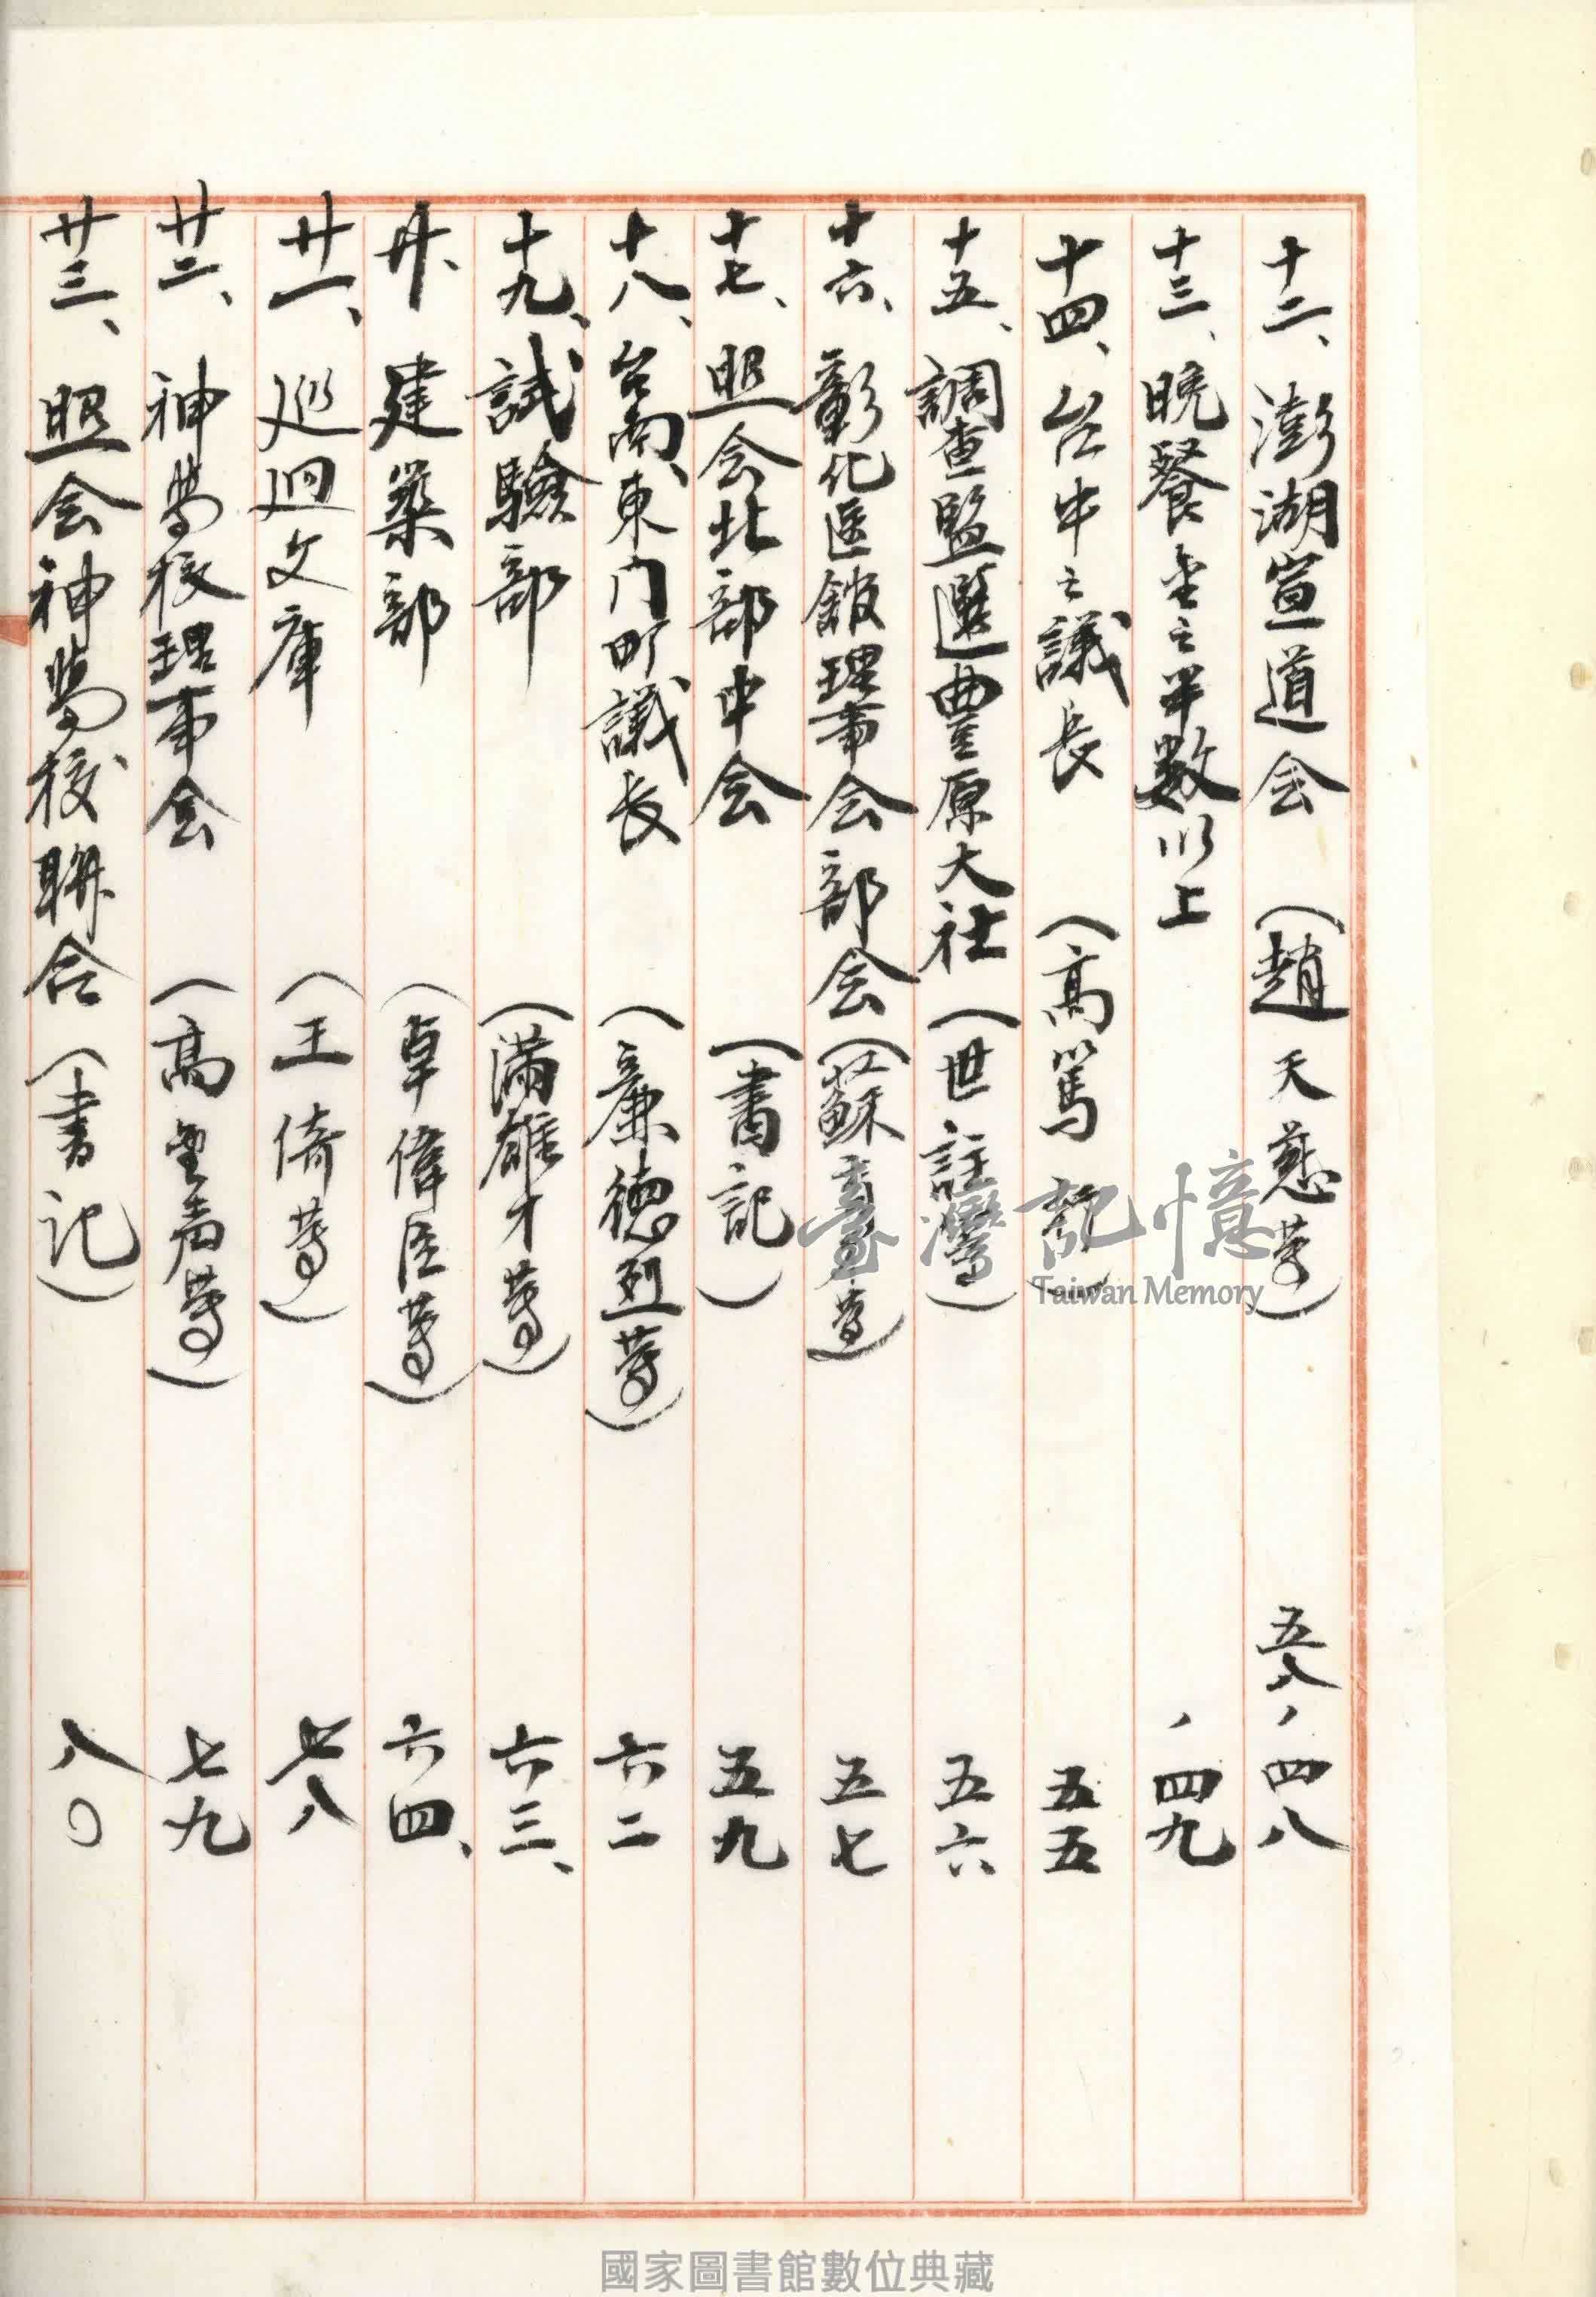 十二、澎湖宣道会（趙天慈等）五八、四八
十三、晚餐 之半數以上 、四九
十四、台中之議長（高篤 五五
十五、調查監選豐原大社（世註 ）五六
十六、彰化医館理事会部会（蘇 等）五七
十七、照会北部中会（書記）五九
十八、台南、東门町議長（廉德烈等）六二
十九、試驗部（滿雄才等）六三、
廿、建築部（卓偉臣等）六四、
廿一、巡迴文庫（王倚等）七八
廿二、神學校理事会（高 等）七九
廿三、照会神學校聯合（書记）八〇
臺灣記憶
Taiwan Memory
國家圖書館數位典藏